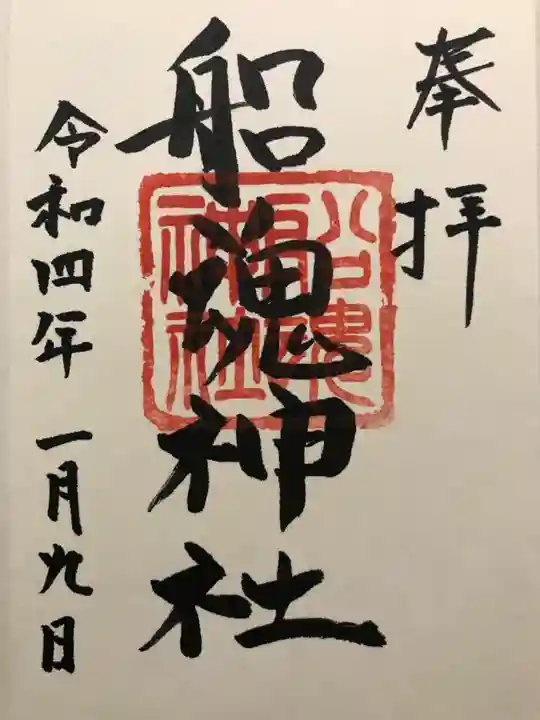 奉拝
船魂神社
令和四年一月九日